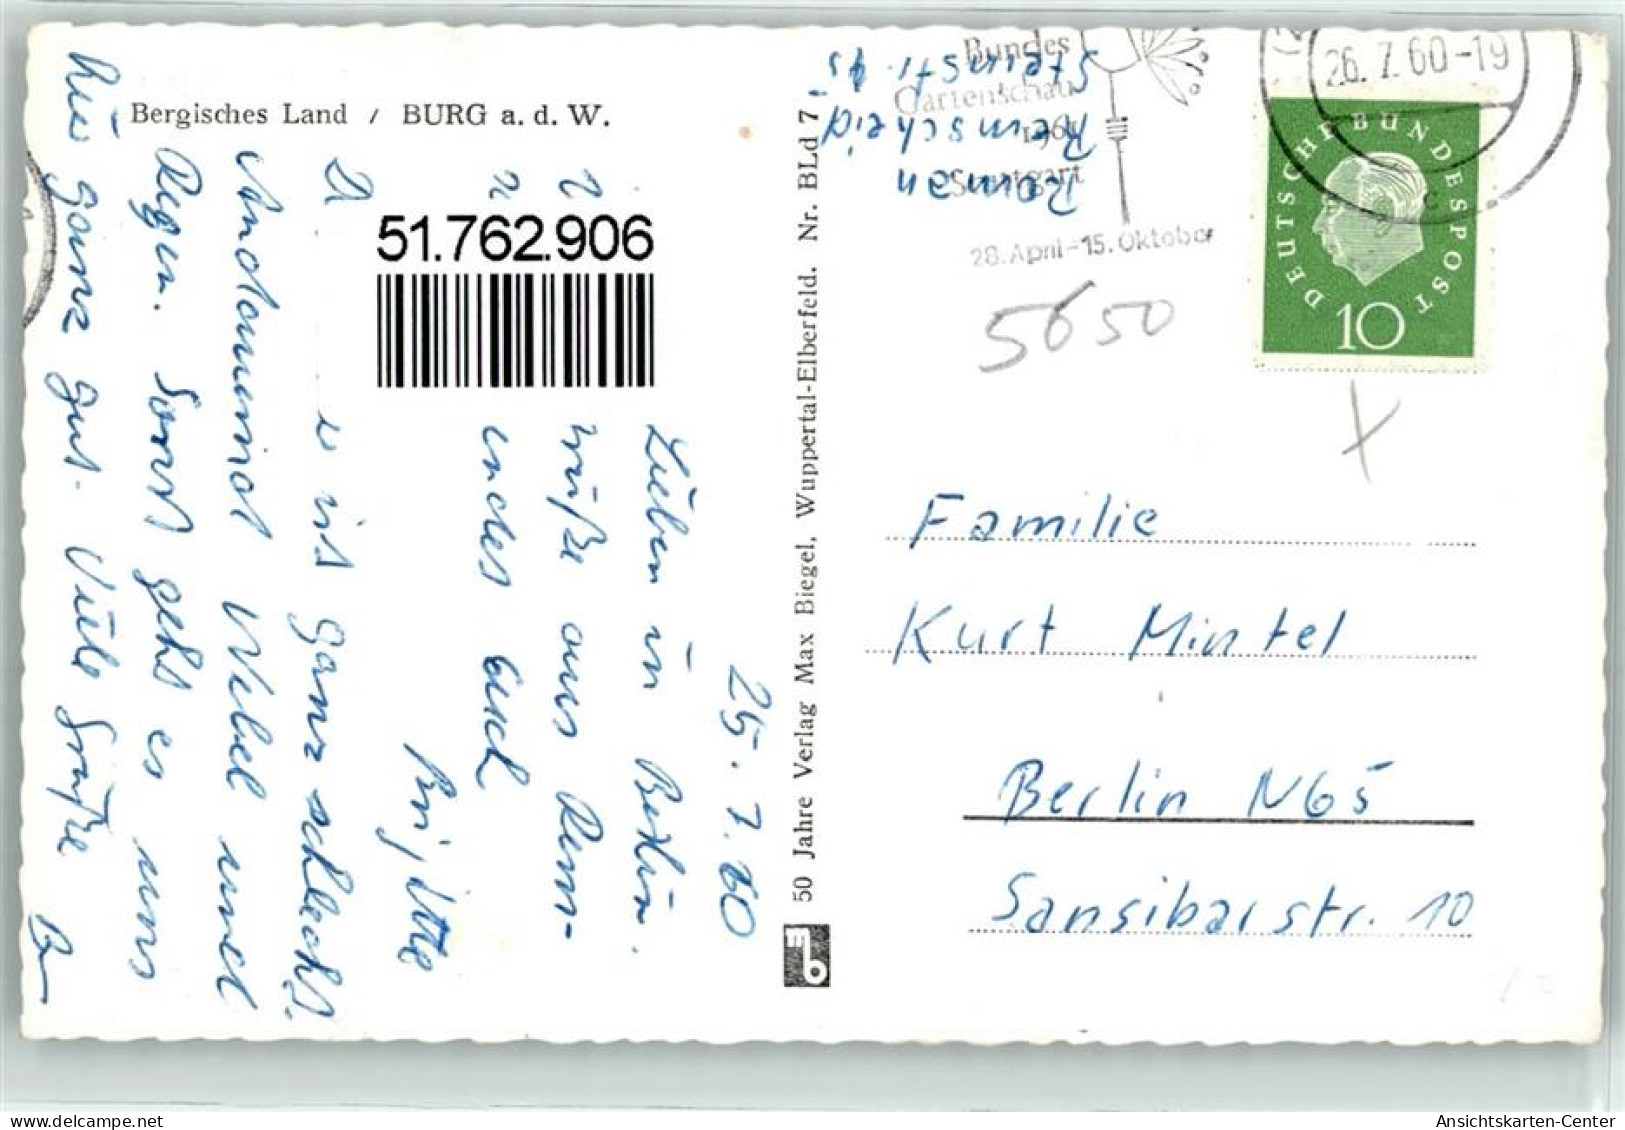 Bergisches Land / BURG a. d. W.
51.762.906
25.7.60
Lieben in Berlin.
aus Rem-
endet euch
Brigitte
ist ganz schlecht.
Andauernd Nebel und
Regen. Sonst geht es uns
hier ganz gut. Viele Grüße
50 Jahre Verlag Max Biegel, Wuppertal-Elberfeld. Nr. BLd 7
Roman
Remscheid
Steinstr.
Bundes
Gartenschau
1961
Stuttgart
28. April-15. Oktober
26.7.60-19
DEUTSCHE BUNDESPOST
10
5650
Familie
Kurt Mintel
Berlin N65
Sansibarstr. 10
Ansichtskarten-Center